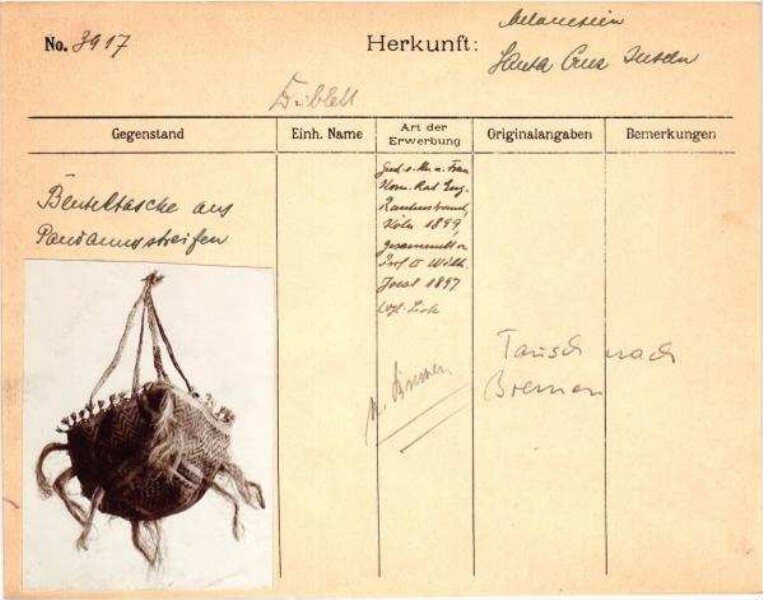 No. 3917
Herkunft:
Melanesien
Santa Cruz Inseln
Dublett
Gegenstand
Einh. Name
Art der
Erwerbung
Originalangaben
Bemerkungen
Beuteltasche aus
Pandanusstreifen
Frau
Kom. Rat Eug.
Rautenstrauch,
Köln 1899,
gesammelt v.
Prof. Dr. Wilh.
Joest 1897
Tausch nach
Bremen
n. Bremen